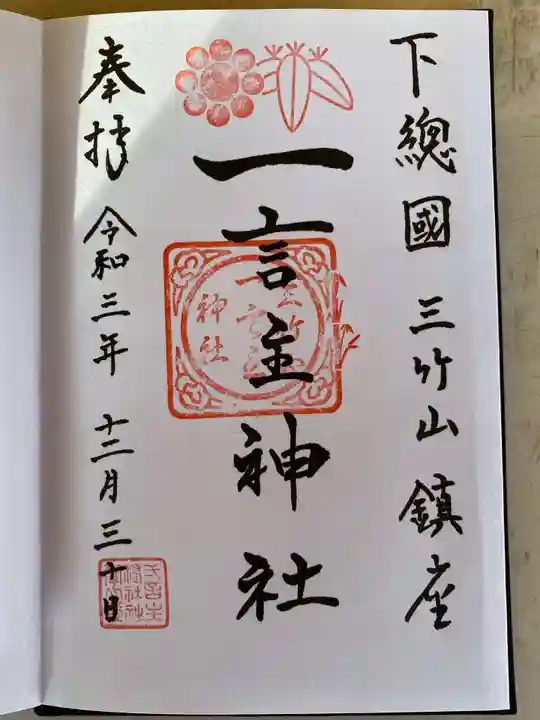 下總國 三竹山鎮座
一言主神社
奉拝 令和三年 十二月三十日